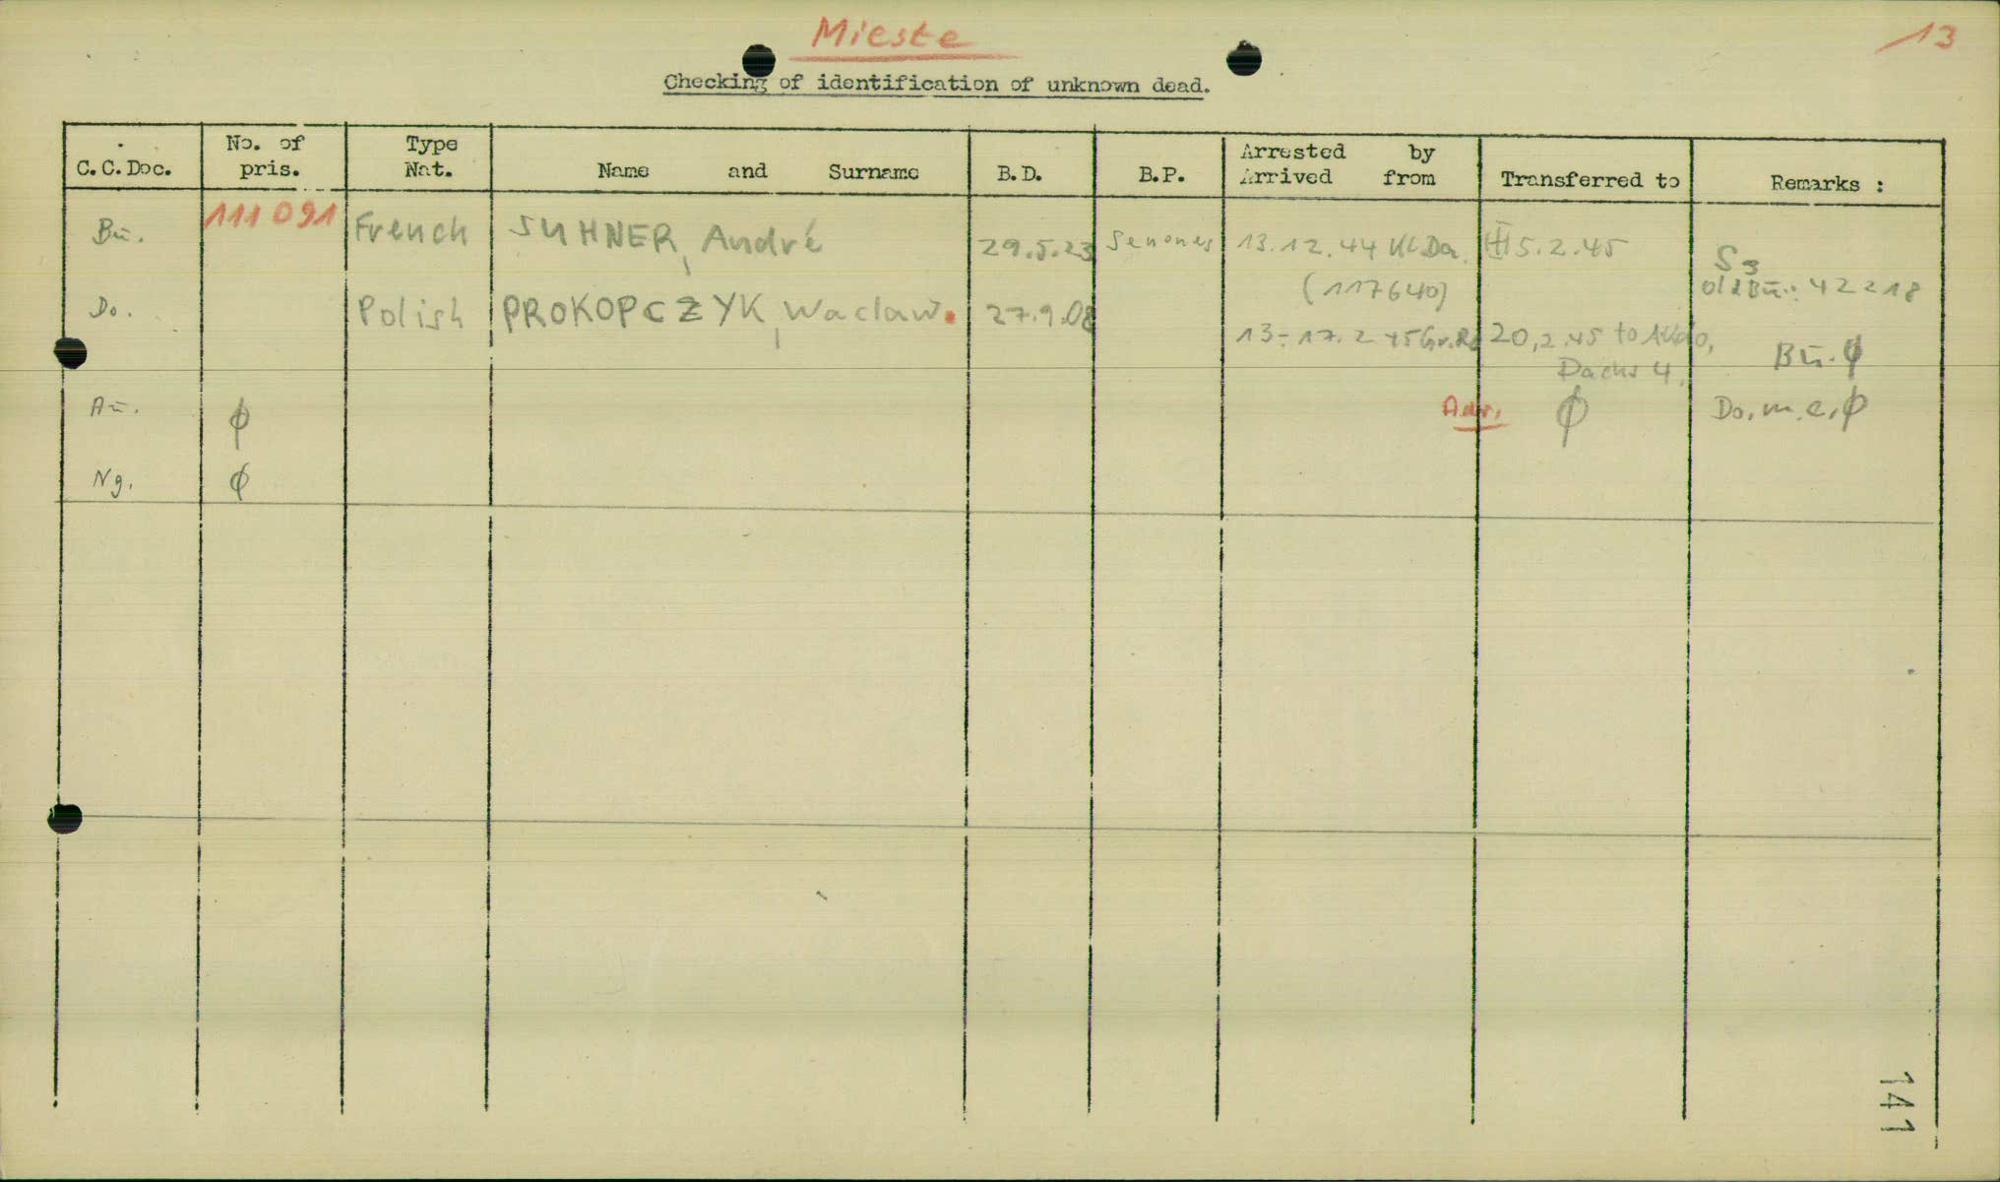 Mieste
13
Checking of identification of unknown dead.
C.C.Doc. No. of pris. Type Nat. Name and Surname B.D. B.P. Arrested by Arrived from Transferred to Remarks :
Bu. 111 091 French SUHNER, André 29.5.23 Senones 13.12.44 KL Da. 5.2.45 S3
(117640) old Bu.: 42218
Do. Polish PROKOPCZYK, Waclaw. 27.9.08
13-17.2 45 Gr.Ro 20,2.45 to Bū. ϕ
Dachs 4.
Au. ϕ ϕ Do. m. e. ϕ
Ng. ϕ
141